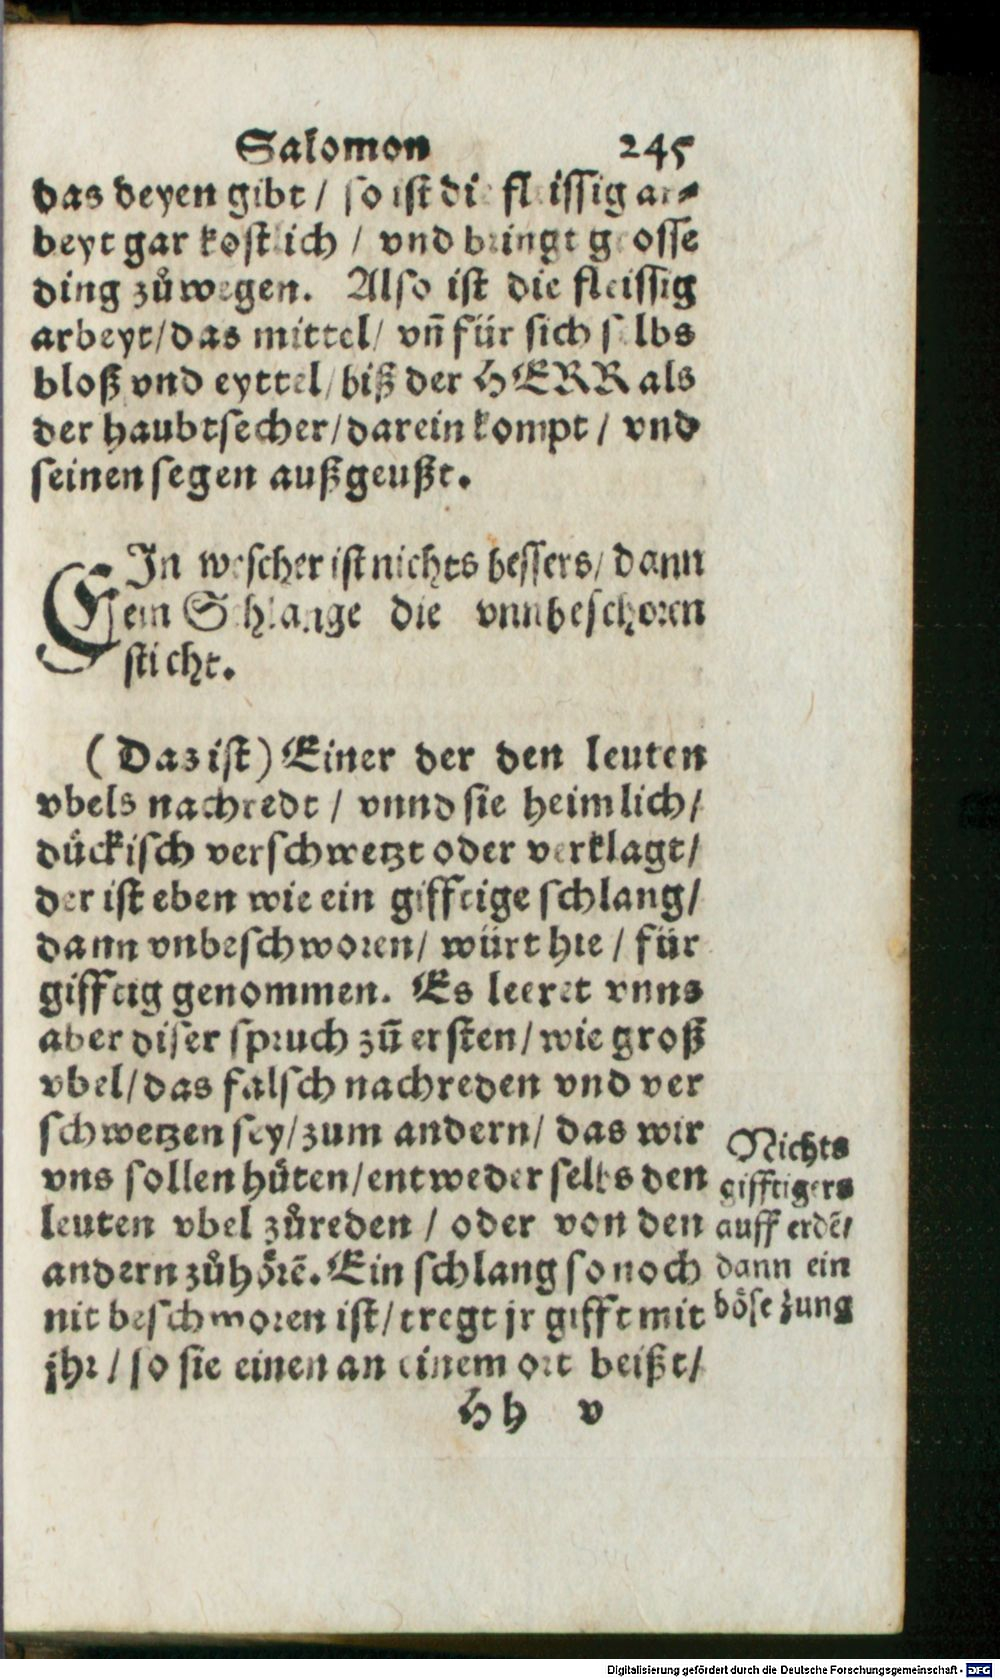 Salomon 245
das deyen gibt / so ist die fleissig ar⸗
beyt gar kostlich / vnd bringt grosse
ding zůwegen. Also ist die fleissig
arbeyt/das mittel/ vñ für sich selbs
bloß vnd eyttel/biß der HERR als
der haubtsecher/darein kompt / vnd
seinen segen außgeußt.
EIn wescher ist nichts bessers/ dann
ein Schlange die vnnbeschoren
sticht.
(Daz ist) Einer der den leuten
vbels nachredt / vnnd sie heimlich/
dückisch verschwetzt oder verklagt/
der ist eben wie ein gifftige schlang/
dann vnbeschworen/ würt hie / für
gifftig genommen. Es leeret vnns
aber diser spruch zū ersten/wie groß
vbel/das falsch nachreden vnd ver
schwetzen sey/zum andern/ das wir
vns sollen hüten/entweder selbs den
leuten vbel zůreden / oder von den
andern zůhörē. Ein schlang so noch
nit beschworen ist/tregt jr gifft mit
jhr / so sie einen an einem ort beißt/
Nichts
gifftigers
auff erdē/
dann ein
böse zung
Hh v
Digitalisierung gefördert durch die Deutsche Forschungsgemeinschaft - DFG